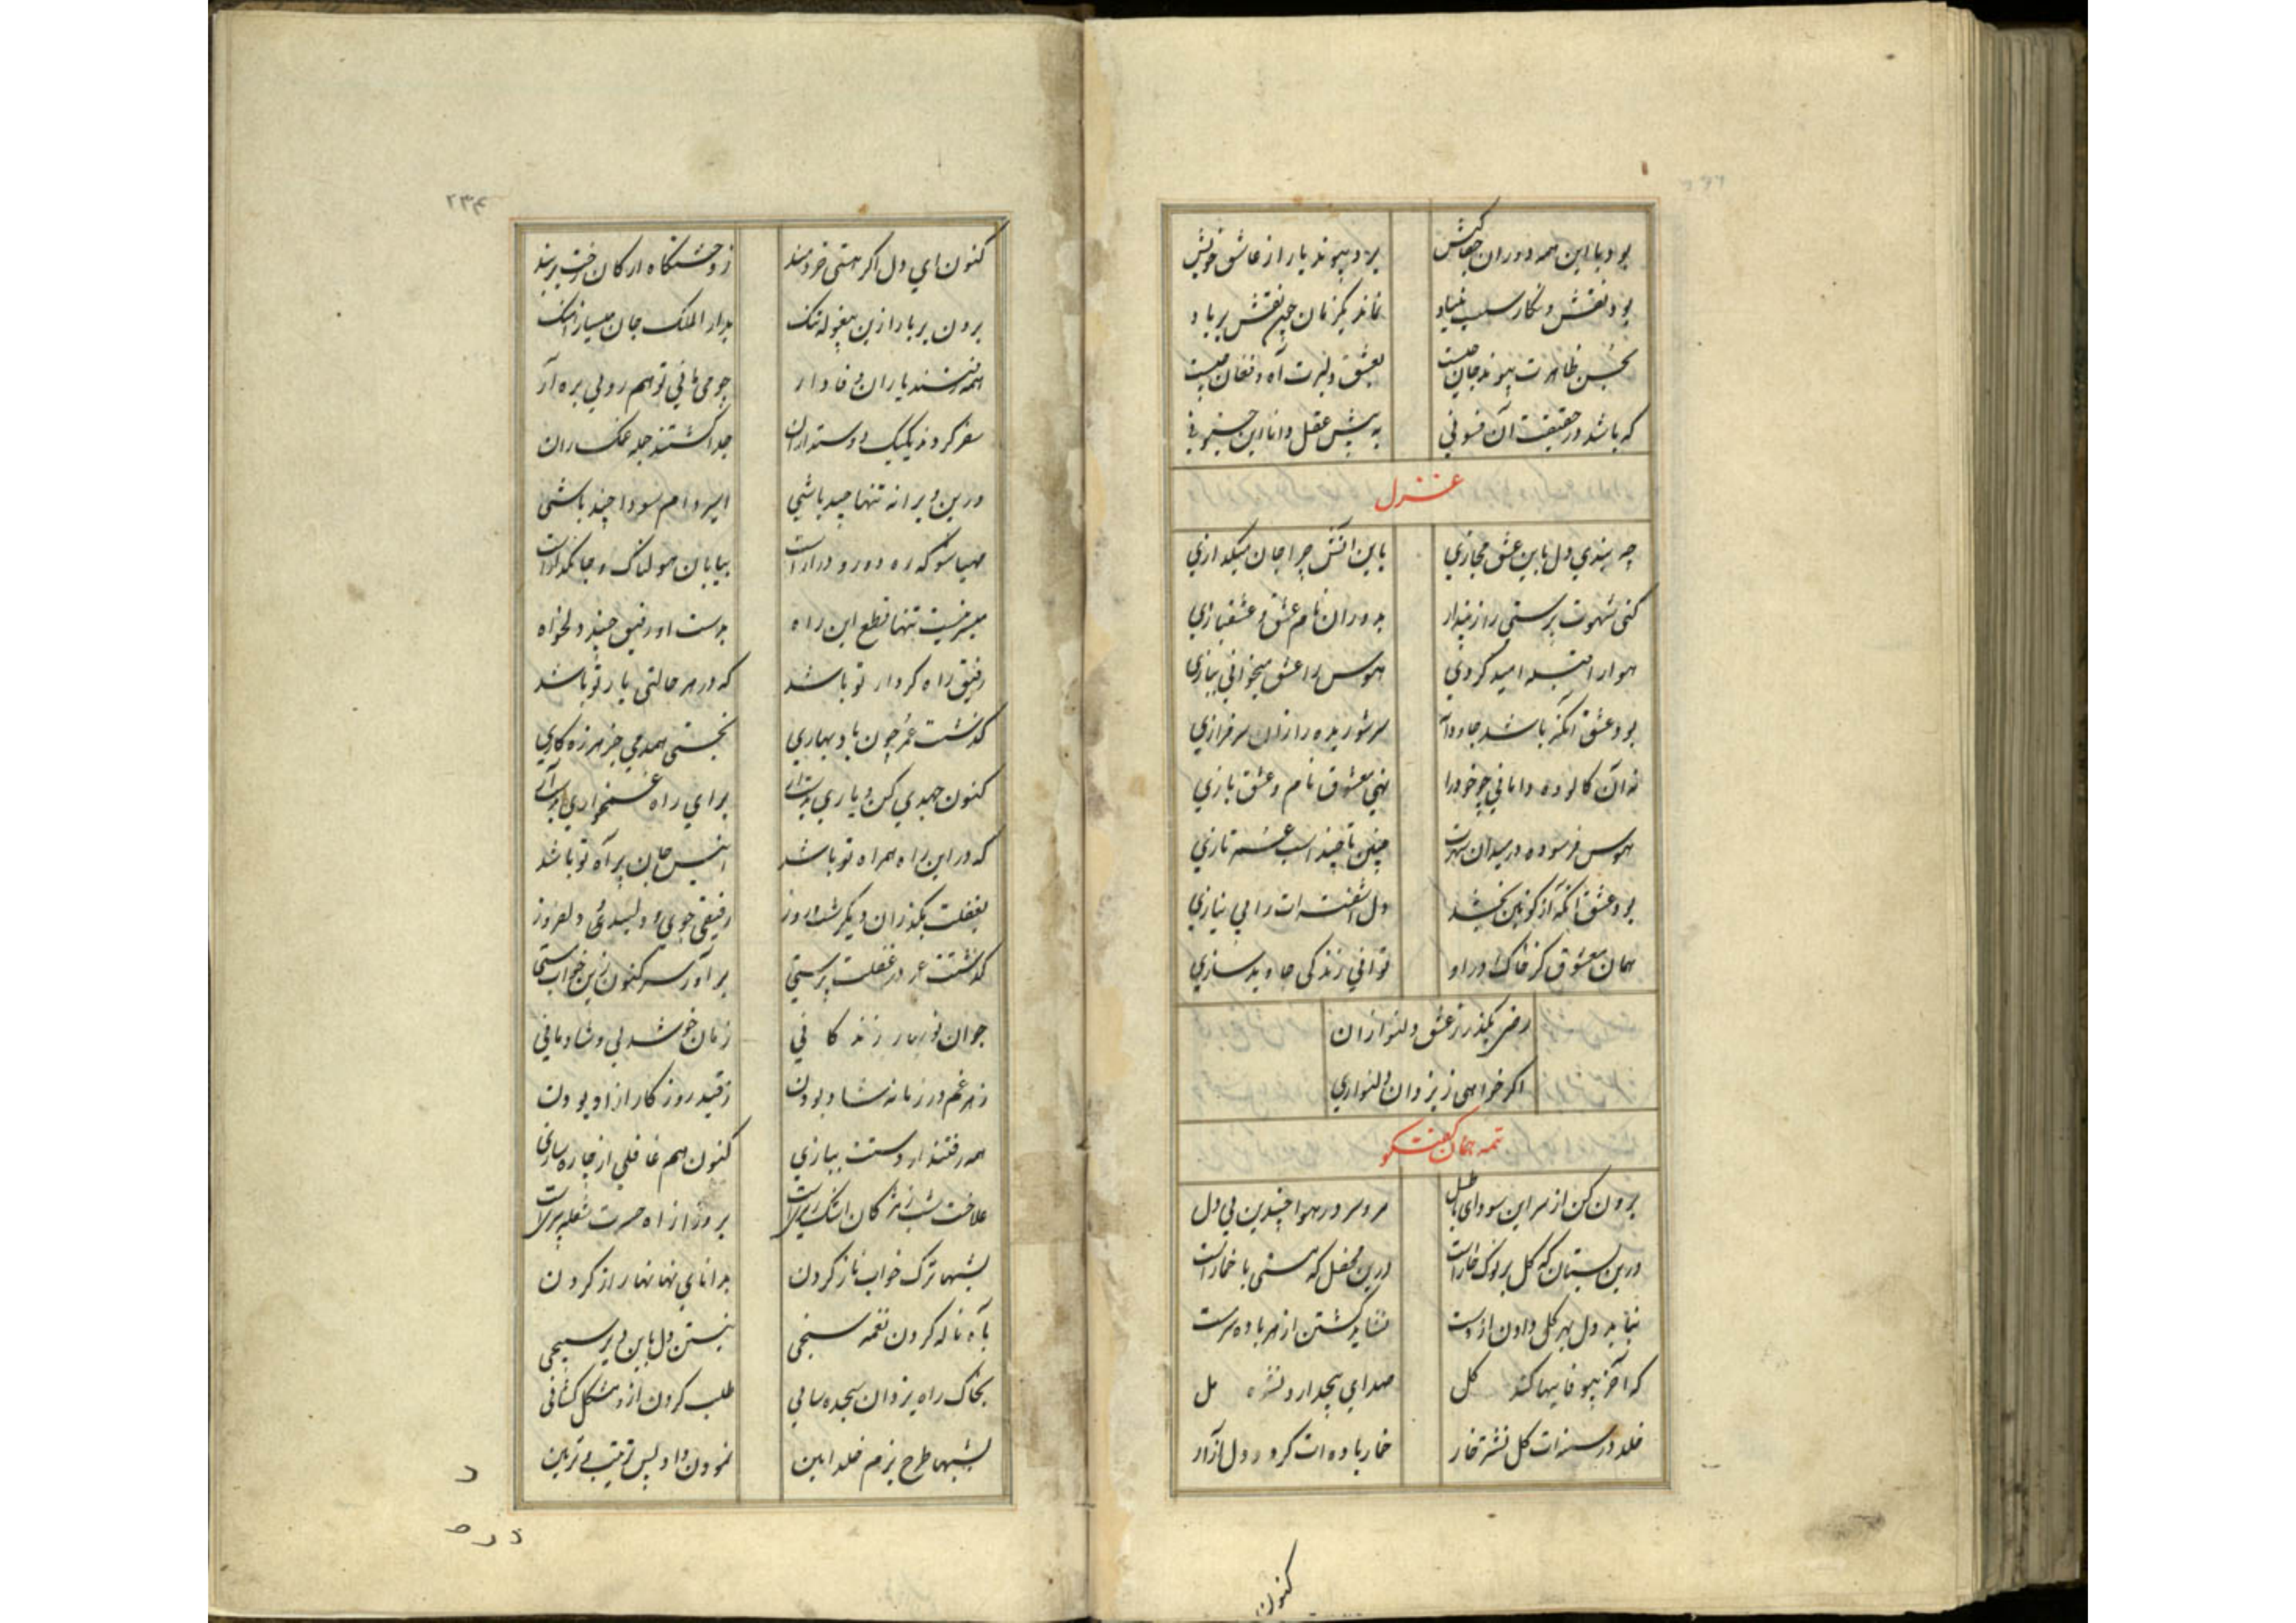 بود با این همه دوران جفاکش    برد پیوند یار از عاشق خویش
بود نقش و نکار سلب بنیاد    نماند یکزمان چین نقش بر باد
بحسن ظاهرت پیوند جان چیست    بعشق دلبرت آه و فغان چیست
که باشد در حقیقت آن فسونی    به پیش عقل دانا این جنونی
غزل
چه بندی دل باین عشق مجازی    باین اتش چرا جان میکدازی
کنی شهوت پرستی را ز پندار    بدوران نام عشق و عشقبازی
هوا را قبله امید کردی    هوس را عشق میخوانی ببازی
بود عشق آنکه باشد جاودانه    سر شوریده را زان سرفرازی
نه آن کالوده دامانی چو خود را    نهی معشوق نام و عشق بازی
هوس فرسوده در میدان شهوت    چنین تا چند اسب غمزه تازی
بود عشق آنکه از کونین بخشد    دل آشفته ات را بی نیازی
همان معشوق کز خاک در او    توانی زندکی جاوید سازی
رضی بکذر ز عشق دلنوازان
اکر خواهی ز یزدان دلنوازی
تتمه همان کفتکو
برون کن از سر این سودای باطل    مرو سر در هوا چندین پی دل
درین بستان که کل بر نوک خار است    درین محفل که مستی با خمار است
نباید دل بهر کلی دادن از دست    نشاید کشتن از هر باده سرمست
که آخر بیوفاییها کند کل    صدای بیچد ار و نشوه مل
خلد در سینه ات کل نشتر خار    خمار باده ات کردد دل ازار
کنون
۲۳۴
کنون ای دل اکر هستی خردمند    ز وحشتکاه ارکان رخت بربند
برون بر بار ازین بیغوله تنک    بدار الملک جان میساز اهنک
همه رفتند یاران وفادار    چو می مانی تو هم رویی بره آر
سفر کردند یکیک دوستداران    جدا کشتند جمله غمکساران
درین ویرانه تنها چند باشی    اسیر دام سودا چند باشی
مهیا شو که ره دور و دراز است    بیابان هولناک و جانکداز است
میسر نیست تنها قطع این راه    بدست اور رفیق چند دلخواه
رفیق راه کردار تو باشد    که در هر حالتی یار تو باشد
کذشت عمر چون باد بهاری    نجستی همدمی جز هرزه کاری
کنون جهدی کن و یاری بدست آر    برای راه غمخواری بدست آر
که در این راه همراه تو باشد    انیس جان پر آه تو باشد
بغفلت مکذران دیکر شب و روز    رفیقی جوی و دلبندی دلفروز
کذشتت عمر در غفلت پرستی    بر آور سر کنون زین خواب مستی
جوان نوبهار زندکانی    زمان خوشدلی و شادمانی
ز هر غم در زمانه شاد بودن    ز قید روزکار ازاد بودن
همه رفتند از دستت ببازی    کنون هم غافلی از چاره سازی
علاجت شب ز مژکان اشک ریزیست    بروز از اه حسرت شعله بیزیست
بشبها ترک خواب ناز کردن    بدانای نهانها راز کردن
بآه ناله کردن نغمه سنجی    نبستن دل باین دیر سپنجی
بخاک راه یزدان سجده سایی    طلب کردن ازو مشکل کشائی
بشبها طرح بزم خلد ایین    نمودن داد پس ترتیب و تزیین